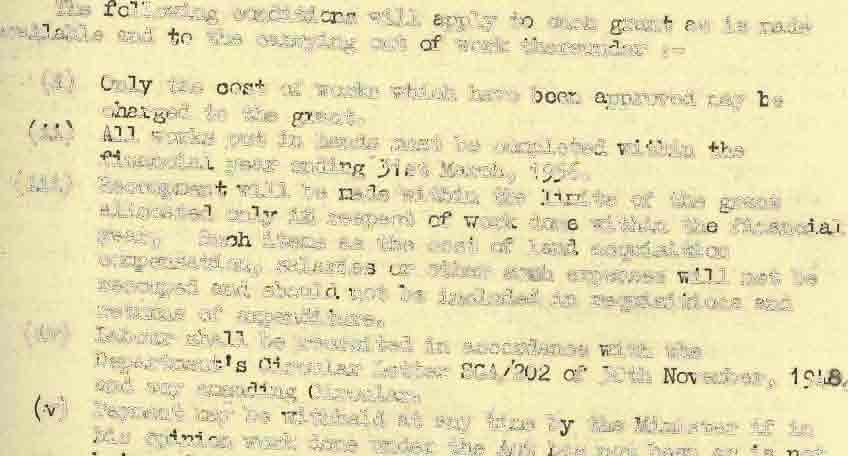 The following conditions will apply to each grant as is made
available and to the carrying out of work thereunder :-
(i) Only the cost of works which have been approved may be
charged to the grant.
(ii) All works put in hands must be completed within the
financial year ending 31st March, 1956.
(iii) Recoupment will be made within the limits of the grant
allocated only in respect of work done within the financial
year. Such items as the cost of land acquisition
compensation, salaries or other such expenses will not be
recouped and should not be included in requisitions and
returns of expenditure.
(iv) Labour shall be recruited in accordance with the
Department's Circular Letter SCA/202 of 30th November, 1948,
and any amending Circulars.
(v) Payment may be withheld at any time by the Minister if in
his opinion work done under the Act has not been or is not